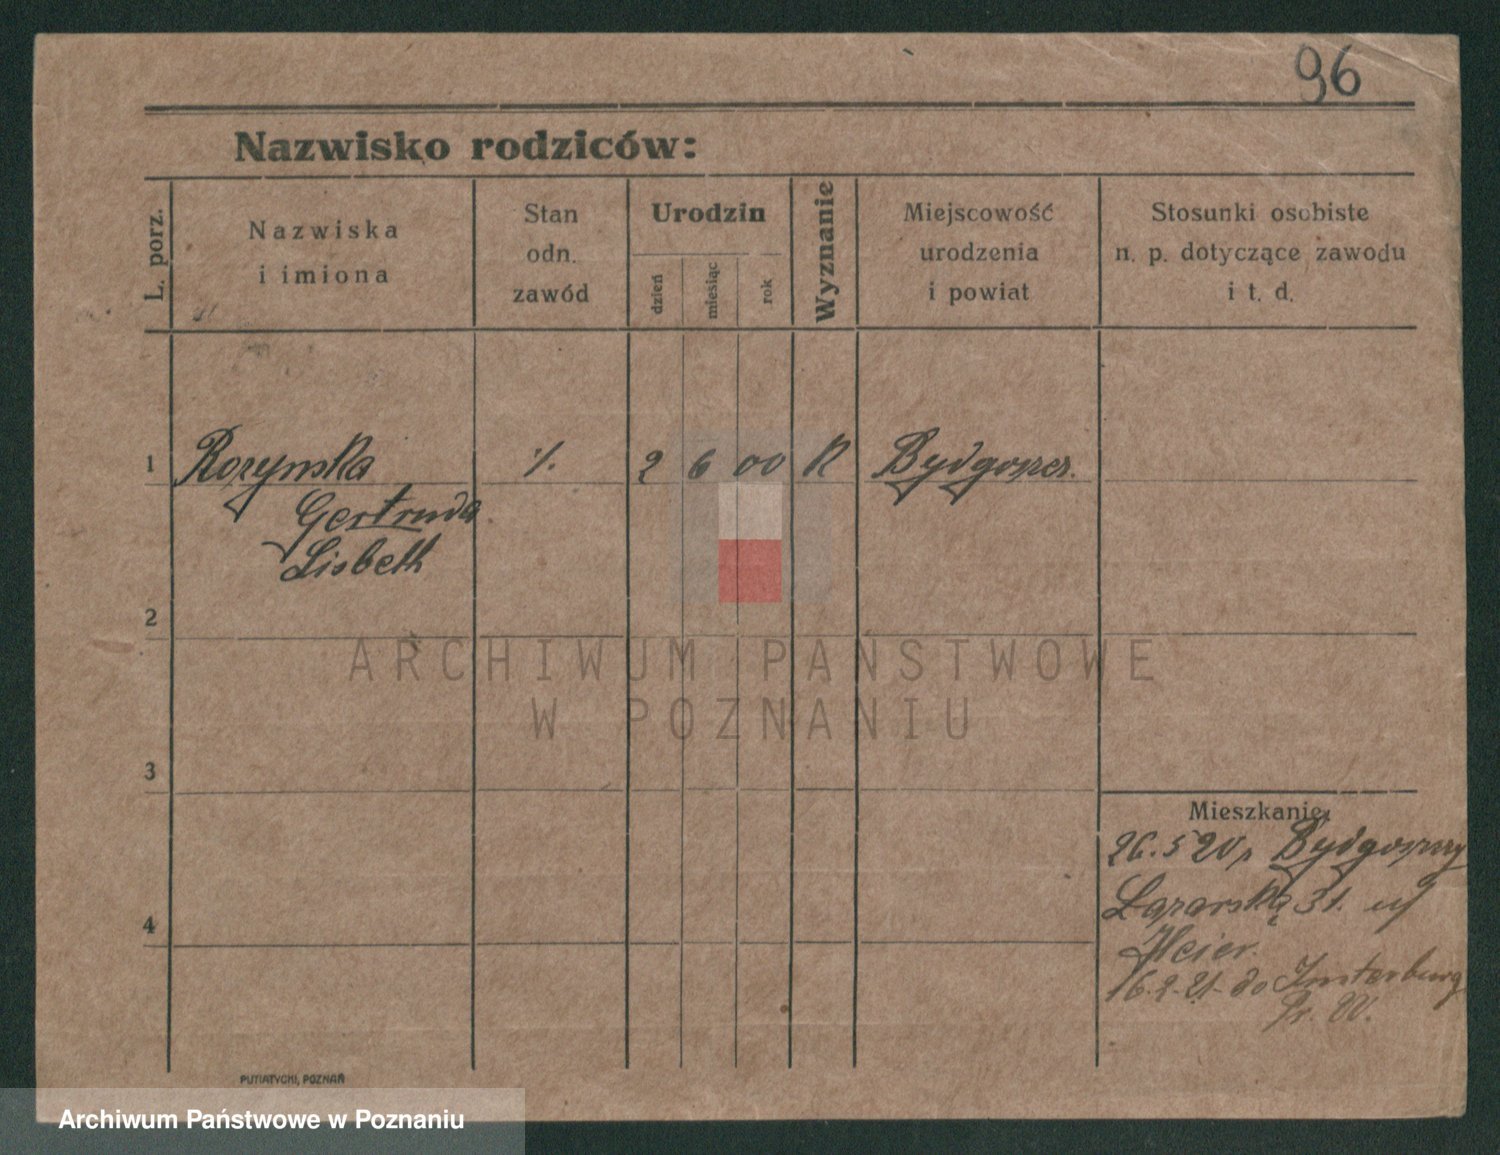 96
Nazwisko rodziców:
L. porz.
Nazwiska
i imiona
Stan
odn.
zawód
Urodzin
dzień
miesiąc
rok
Wyznanie
Miejscowość
urodzenia
i powiat
Stosunki osobiste
n. p. dotyczące zawodu
i t. d.
1 Rozynska 2 6 00 K Bydgoszcz.
Gertruda
Lisbeth
2
ARCHIWUM PAŃSTWOWE
W POZNANIU
3
Mieszkanie:
26. 5 20, Bydgoszcz
31.
4
16. 2. 21. do Insterburg
Pr. W.
PUTIATYCKI, POZNAŃ
Archiwum Państwowe w Poznaniu